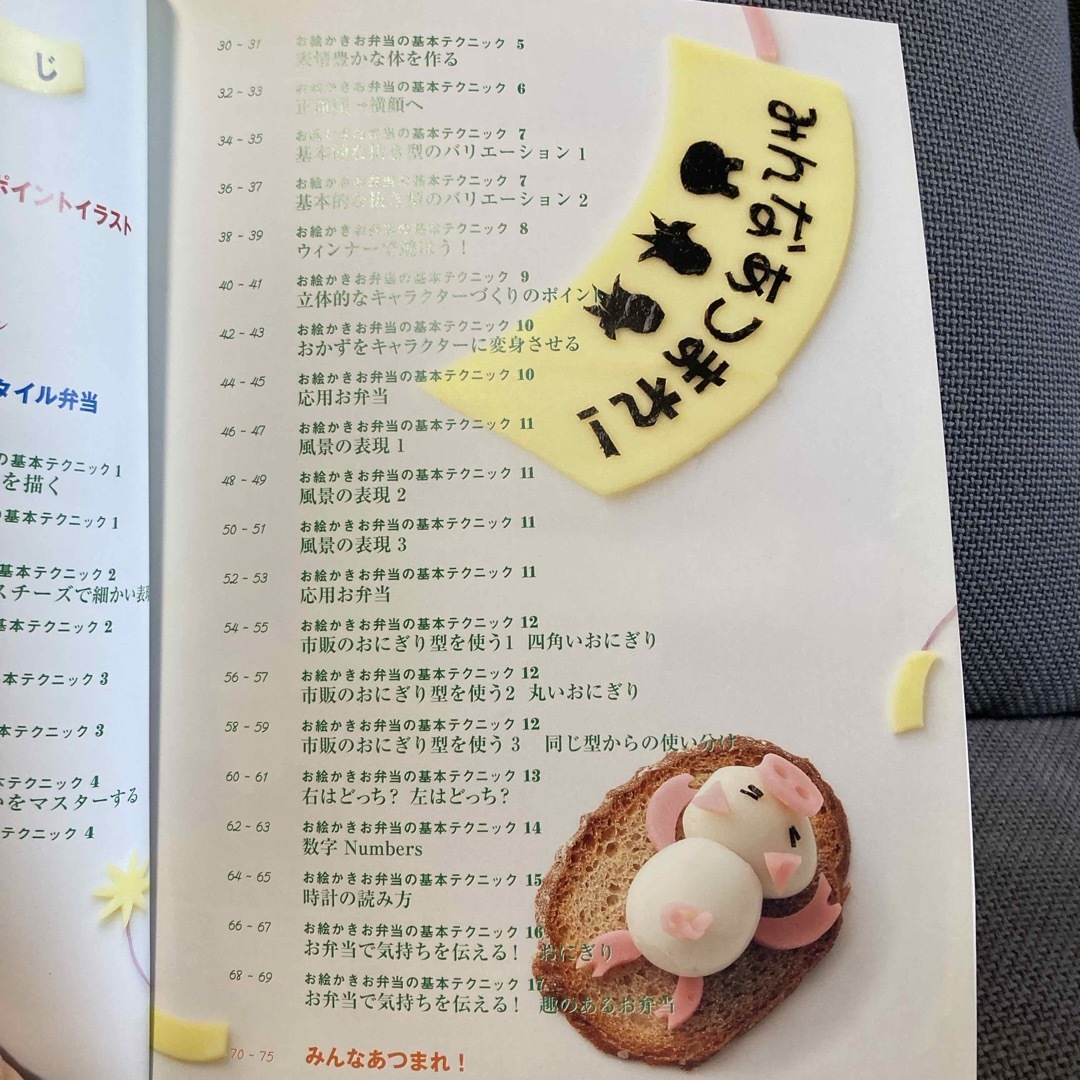 じ
ポイントイラスト
タイル弁当
の基本テクニック 1
を描く
の基本テクニック 1
基本テクニック 2
スチーズで細かい表
基本テクニック 2
本テクニック 3
本テクニック 3
テクニック 4
いをマスターする
テクニック 4
30 ~ 31 お絵かきお弁当の基本テクニック 5
表情豊かな体を作る
32 ~ 33 お絵かきお弁当の基本テクニック 6
横顔へ
34 ~ 35 お絵かきお弁当の基本テクニック 7
基本的な抜き型のバリエーション 1
36 ~ 37 お絵かきお弁当の基本テクニック 7
基本的な抜き型のバリエーション 2
38 ~ 39 お絵かきお弁当の基本テクニック 8
ウィンナーで
40 ~ 41 お絵かきお弁当の基本テクニック 9
立体的なキャラクターづくりのポイント
42 ~ 43 お絵かきお弁当の基本テクニック 10
おかずをキャラクターに変身させる
44 ~ 45 お絵かきお弁当の基本テクニック 10
応用お弁当
46 ~ 47 お絵かきお弁当の基本テクニック 11
風景の表現 1
48 ~ 49 お絵かきお弁当の基本テクニック 11
風景の表現 2
50 ~ 51 お絵かきお弁当の基本テクニック 11
風景の表現 3
52 ~ 53 お絵かきお弁当の基本テクニック 11
応用お弁当
54 ~ 55 お絵かきお弁当の基本テクニック 12
市販のおにぎり型を使う1 四角いおにぎり
56 ~ 57 お絵かきお弁当の基本テクニック 12
市販のおにぎり型を使う2 丸いおにぎり
58 ~ 59 お絵かきお弁当の基本テクニック 12
市販のおにぎり型を使う 3 同じ型からの使い分け
60 ~ 61 お絵かきお弁当の基本テクニック 13
右はどっち? 左はどっち?
62 ~ 63 お絵かきお弁当の基本テクニック 14
数字 Numbers
64 ~ 65 お絵かきお弁当の基本テクニック 15
時計の読み方
66 ~ 67 お絵かきお弁当の基本テクニック 16
お弁当で気持ちを伝える! おにぎり
68 ~ 69 お絵かきお弁当の基本テクニック 17
お弁当で気持ちを伝える! 趣のあるお弁当
70 ~ 75 みんなあつまれ!
みんなあつまれ!